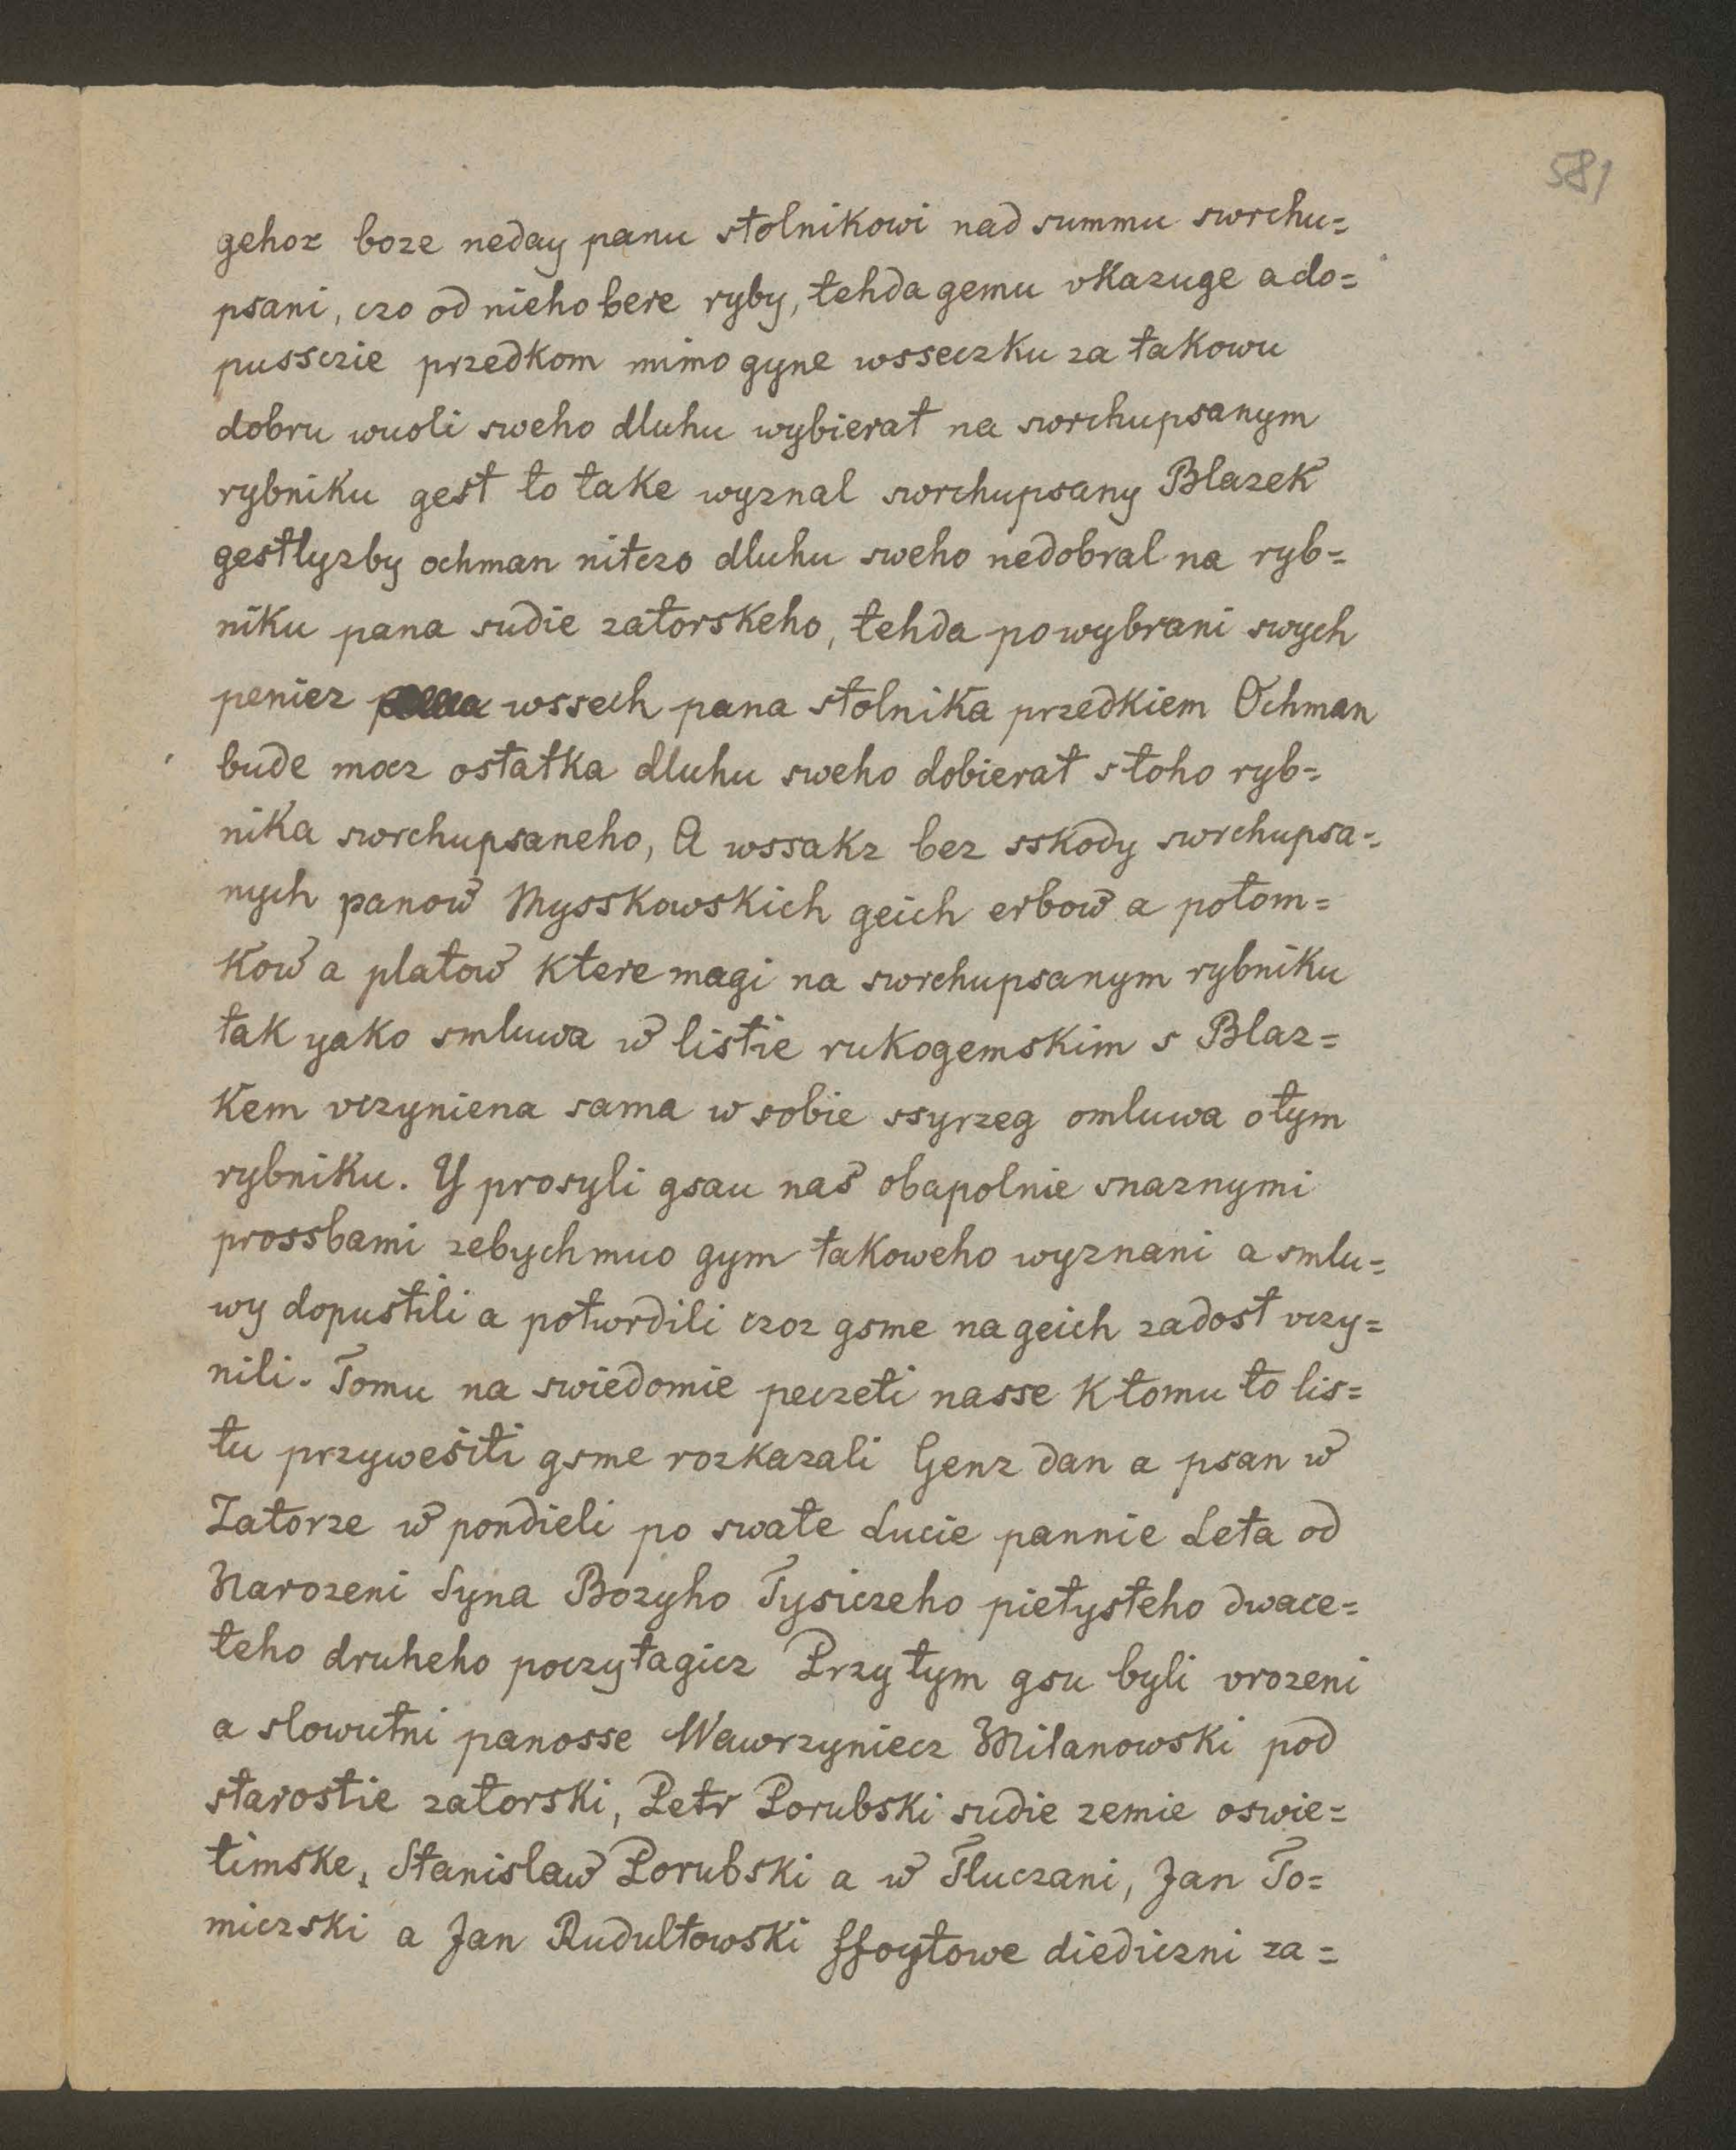 581
gehoz boze neday panu stolnikowi nad summu swrchu=
psani, czo od nieho bere ryby, tehda gemu vkazuge a do=
pussczie przedkom mimo gyne wsseczku za takowu
dobru wuoli sweho dluhu wybierat na swrchupsanym
rybniku gest to take wyznal swrchupsany Blazek
gestlyzby ochman nitczo dluhu sweho nedobral na ryb=
niku pana sudie zatorskeho, tehda po wybrani swych
peniez wssech pana stolnika przedkiem Ochman
bude mocz ostatka dluhu sweho dobierat s toho ryb=
nika swrchupsaneho, A wssakz bez sskody swrchupsa=
nych panow Mysskowskich geich erbow a potom=
kow a platow ktere magi na swrchupsanym rybniku
tak yako smluwa w listie rukogemskim s Blaz=
kem vczyniena sama w sobie ssyrzeg omluwa o tym
rybniku. Y prosyli gsau nas obapolnie snaznymi
prossbami zebychmuo gym takoweho wyznani a smlu=
wy dopustili a potwrdili czoz gsme na geich zadost vczy=
nili. Tomu na swiedomie peczeti nasse k tomu to lis=
tu przywesiti gsme rozkazali Genz dan a psan w
Zatorze w pondieli po swate Lucie pannie Leta od
Narozeni Syna Bozyho Tysiczeho pietysteho dwace=
teho druheho poczytagicz Przy tym gsu byli vrozeni
a slowutni panosse Wawrzyniecz Milanowski pod
starostie zatorski, Petr Porubski sudie zemie oswie=
timske, Stanislaw Porubski a w Tluczani, Jan To=
miczski a Jan Rudultowski ffoytowe diediczni za=